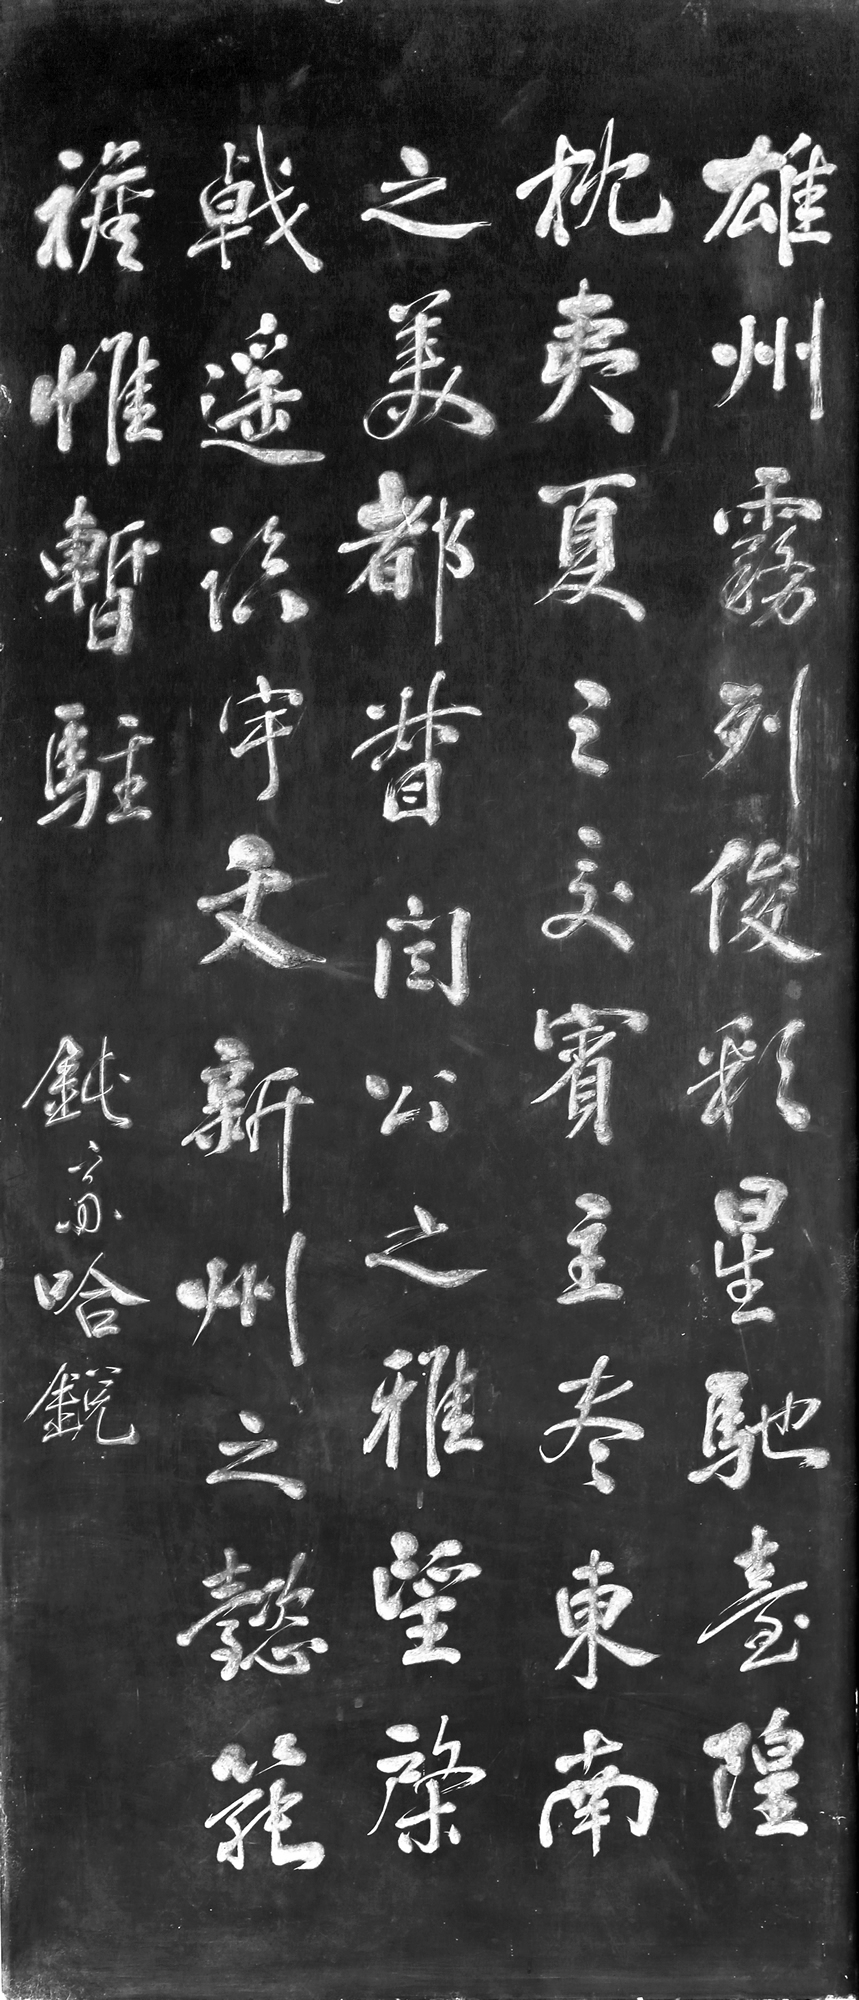 雄州霧列俊彩星馳臺隍
枕夷夏之交賓主尽東南
之美都督閆公之雅望棨
戟遥臨宇文新州之懿範
襜帷暫駐 鈍斋哈銳